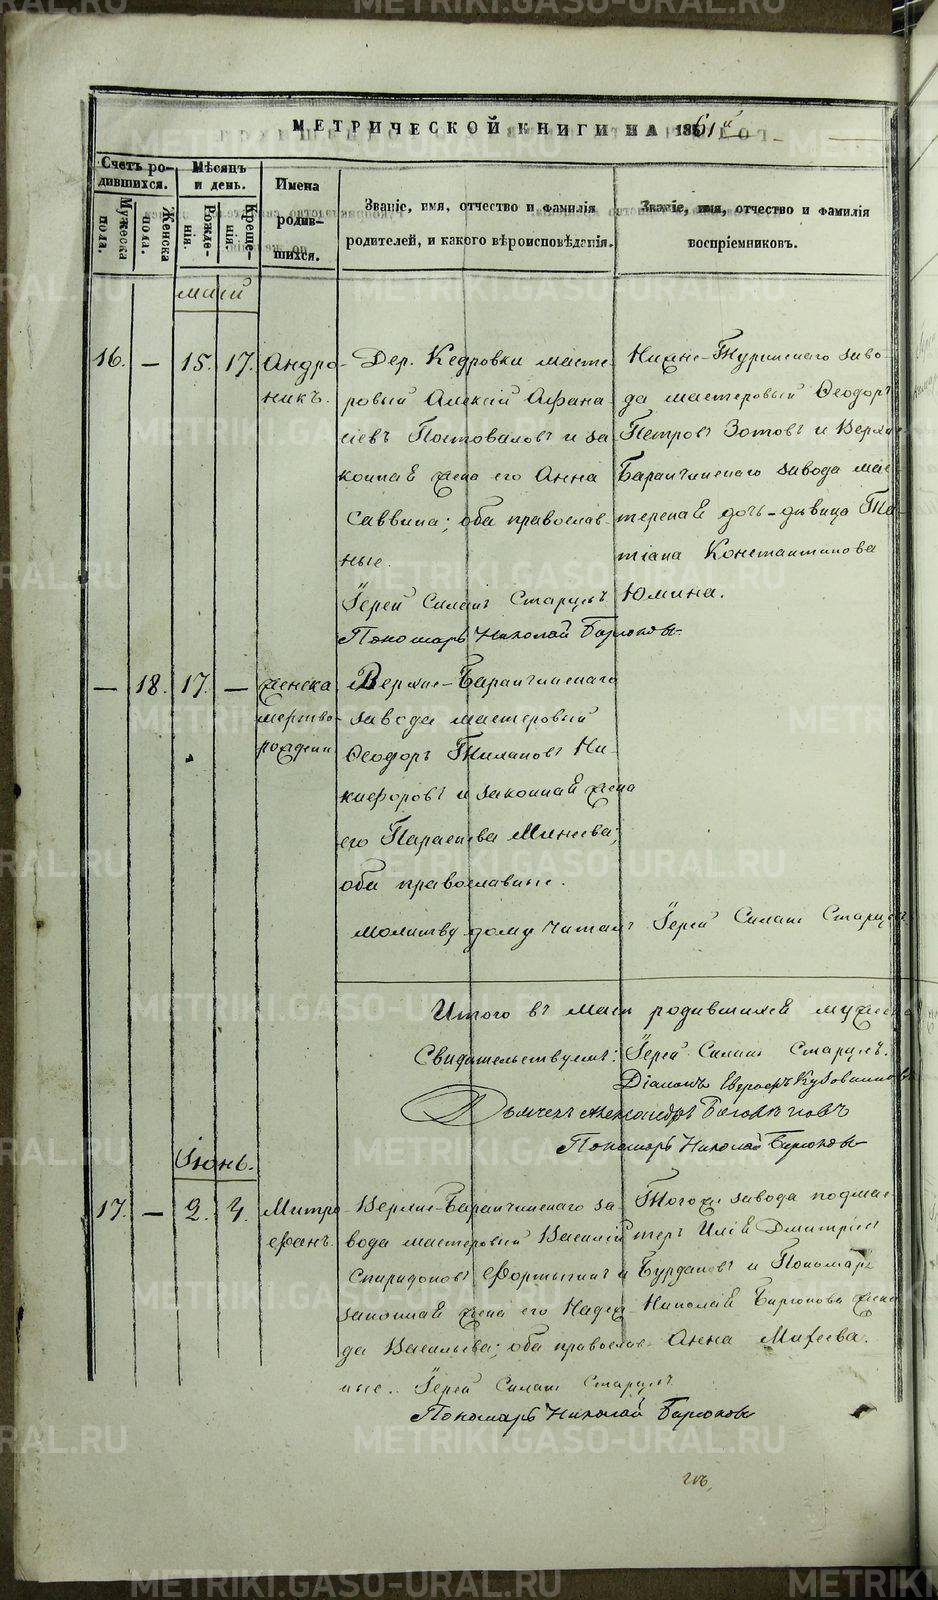 МЕТРИЧЕСКОЙ КНИГИ НА 1861й
Счетъ ро-
дившихся.
Мѣсяцъ
и день.
Имена
родив-
шихся.
Званіе, имя, отчество и фамилія
родителей, и какого вѣроисповѣданія.
Званіе, имя, отчество и фамилія
воспріемниковъ.
Мужеска
пола.
Женска
пола.
Рожде-
нія.
Креще-
нія.
Маій
16. — 15. 17. Андро-
никъ.
Дер. Кедровки масте-
ровый Алексій Афана-
сіевъ Постоваловъ и за-
конная жена его Анна
Саввина; оба православ-
ные.
Іерей Симеонъ Старцевъ
Пономарь Николай Бирюковъ
Нижне-Туринскаго заво-
да мастеровый Ѳеодоръ
Петровъ Зотовъ и Верхне-
Баранчинскаго завода мас-
терская дочь-дѣвица Та-
тіана Константинова
Юмина.
— 18. 17. — женска
мертво-
рожден.
Верхне-Баранчинскаго
завода мастеровый
Ѳеодоръ Ни-
кифоровъ и законная жена
его Параскева Минеева;
оба православные.
Молитву дому читалъ Іерей Старцевъ
Итого въ Маіи родившихся мужеска
Свидѣтельствуемъ: Іерей Старцевъ.
Діаконъ
Дьячекъ Александръ
Пономарь Николай Бирюковъ
Іюнь.
17. — 2. 4. Митро-
фанъ.
Верхне-Баранчинскаго за-
вода мастеровый Василій
Спиридоновъ и
законная жена его Надеж-
да Васильева; оба православ-
ные. Іерей Старцевъ
Пономарь Николай Бирюковъ
Того же завода подмас-
терь Илія Дмитріевъ
Бурдаковъ и Пономаря
Николая Бирюкова жена
Анна Михеева.
METRIKI.GASO-URAL.RU